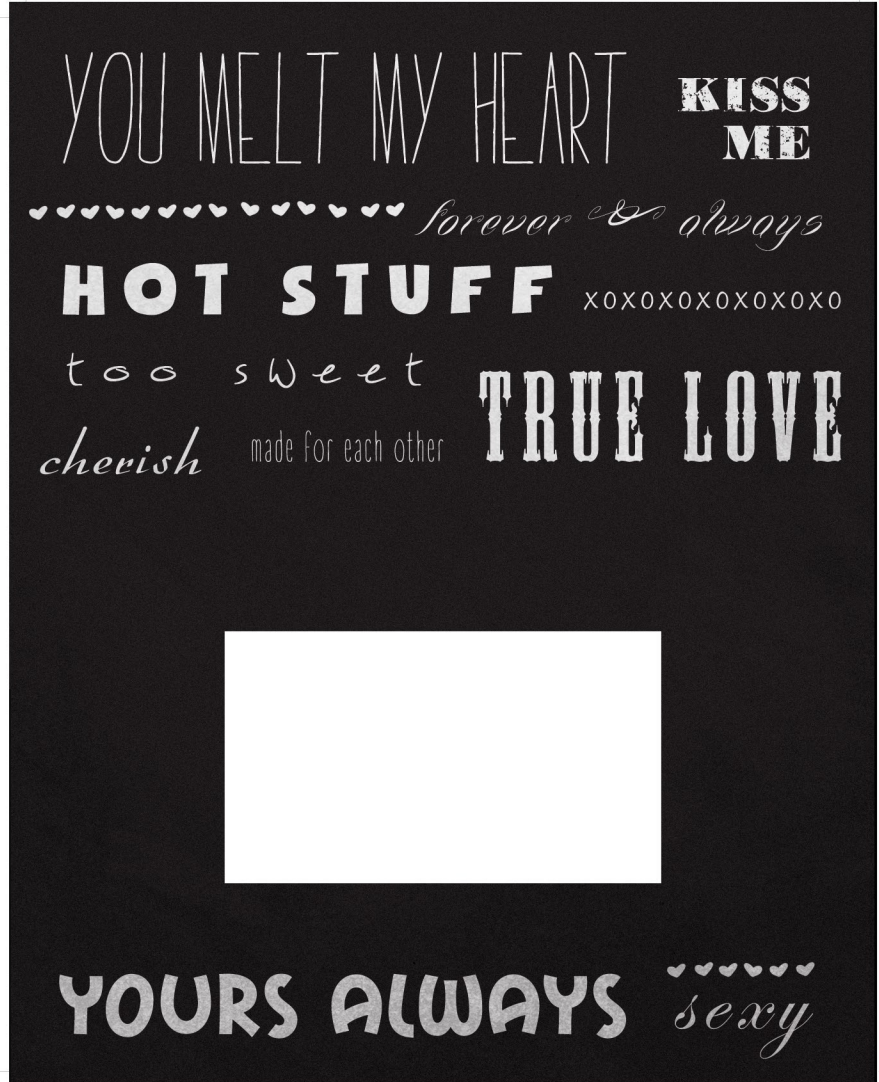 YOU MELT MY HEART
KISS
ME
forever & always
HOT STUFF
xoxoxoxoxoxoxo
too sweet
TRUE LOVE
cherish
made for each other
YOURS ALWAYS
sexy